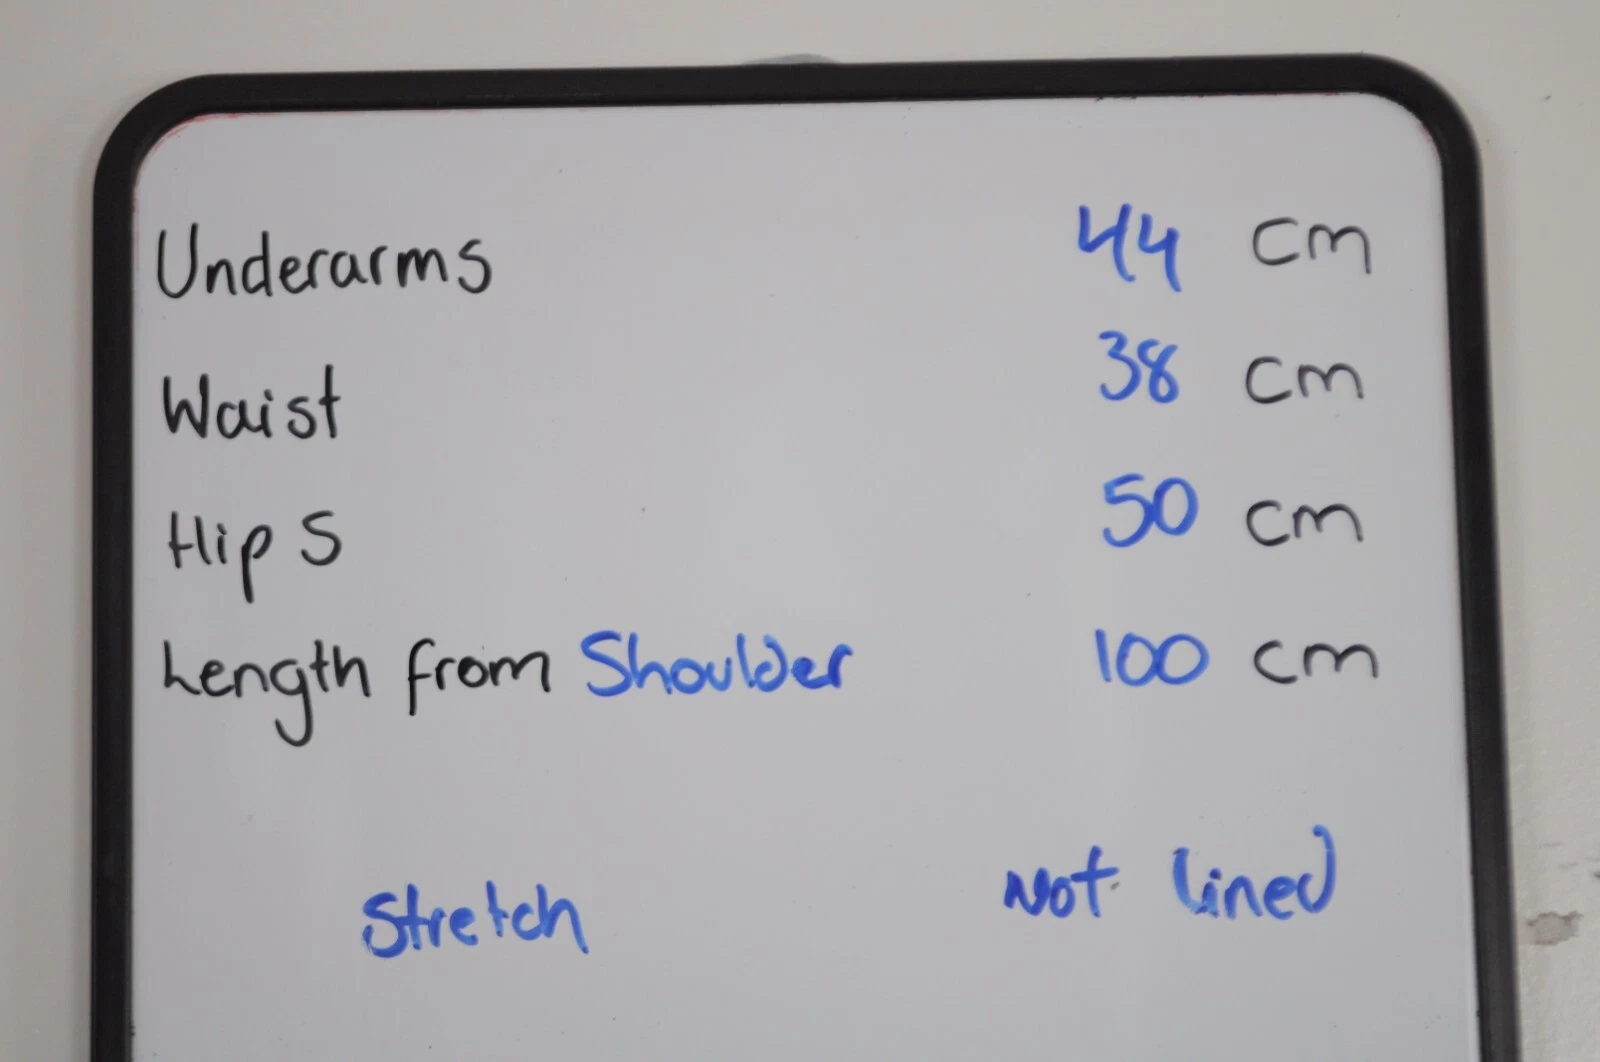 Underarms 44 cm
Waist 38 cm
Hips 50 cm
Length from Shoulder 100 cm
Stretch Not lined